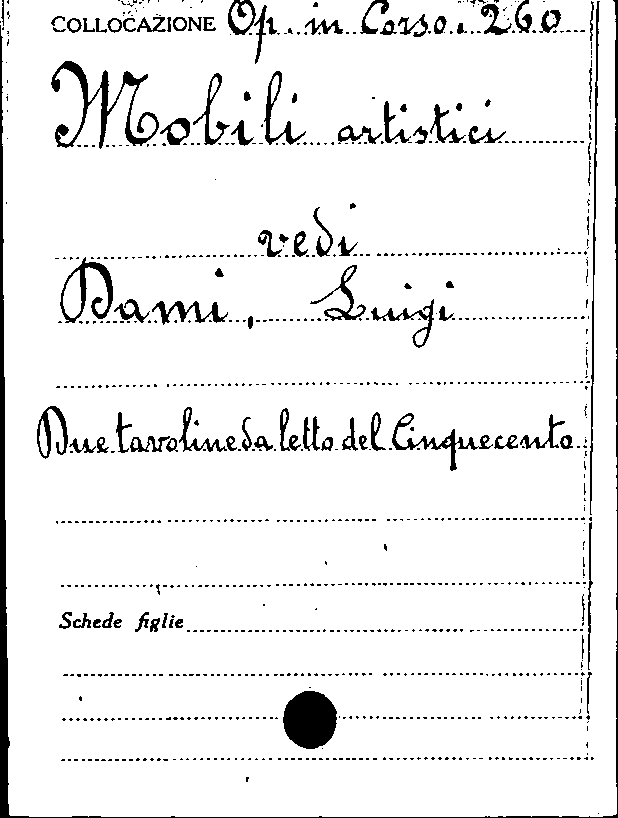 COLLOCAZIONE Op. in Corso. 260
Mobili artistici
vedi
Dami, Luigi
Due tavoline da letto del Cinquecento
Schede figlie